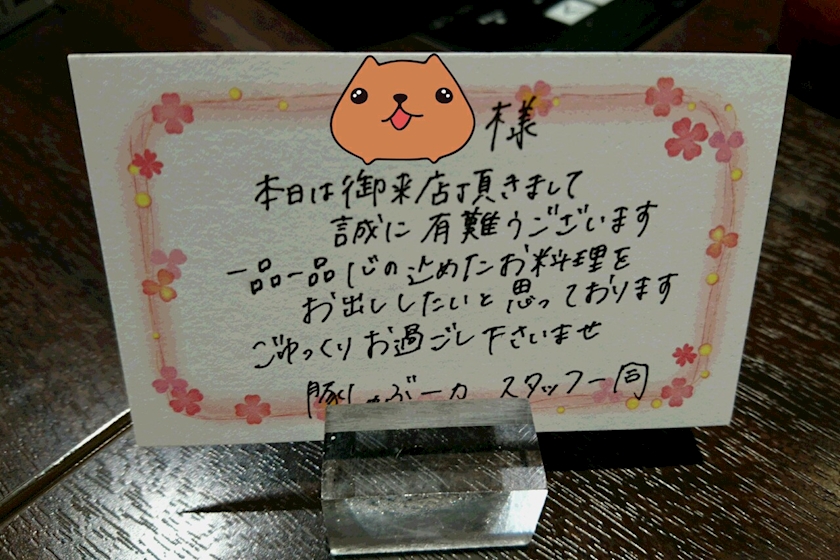 様
本日は御来店頂きまして
誠に有難うございます
一品一品心の込めたお料理を
お出ししたいと思っております
ごゆっくりお過ごし下さいませ
豚しゃぶ一力 スタッフ一同